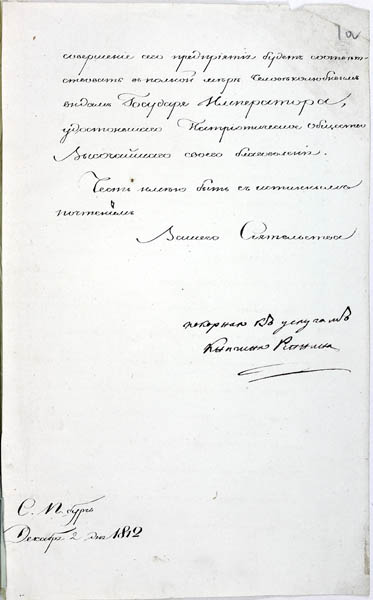 1а
совершение сего предпріятія будетъ соотвѣт-
ствовать въ полной мѣрѣ человѣколюбивымъ
видамъ Государя Императора,
удостоившаго Патріотическое Общество
Высочайшаго своего благоволенія.
Честь имѣю быть съ истиннымъ
почтеніемъ
Вашего Сіятельства
покорная къ услугамъ
С. П. бургъ
Декабр 2 дня 1812